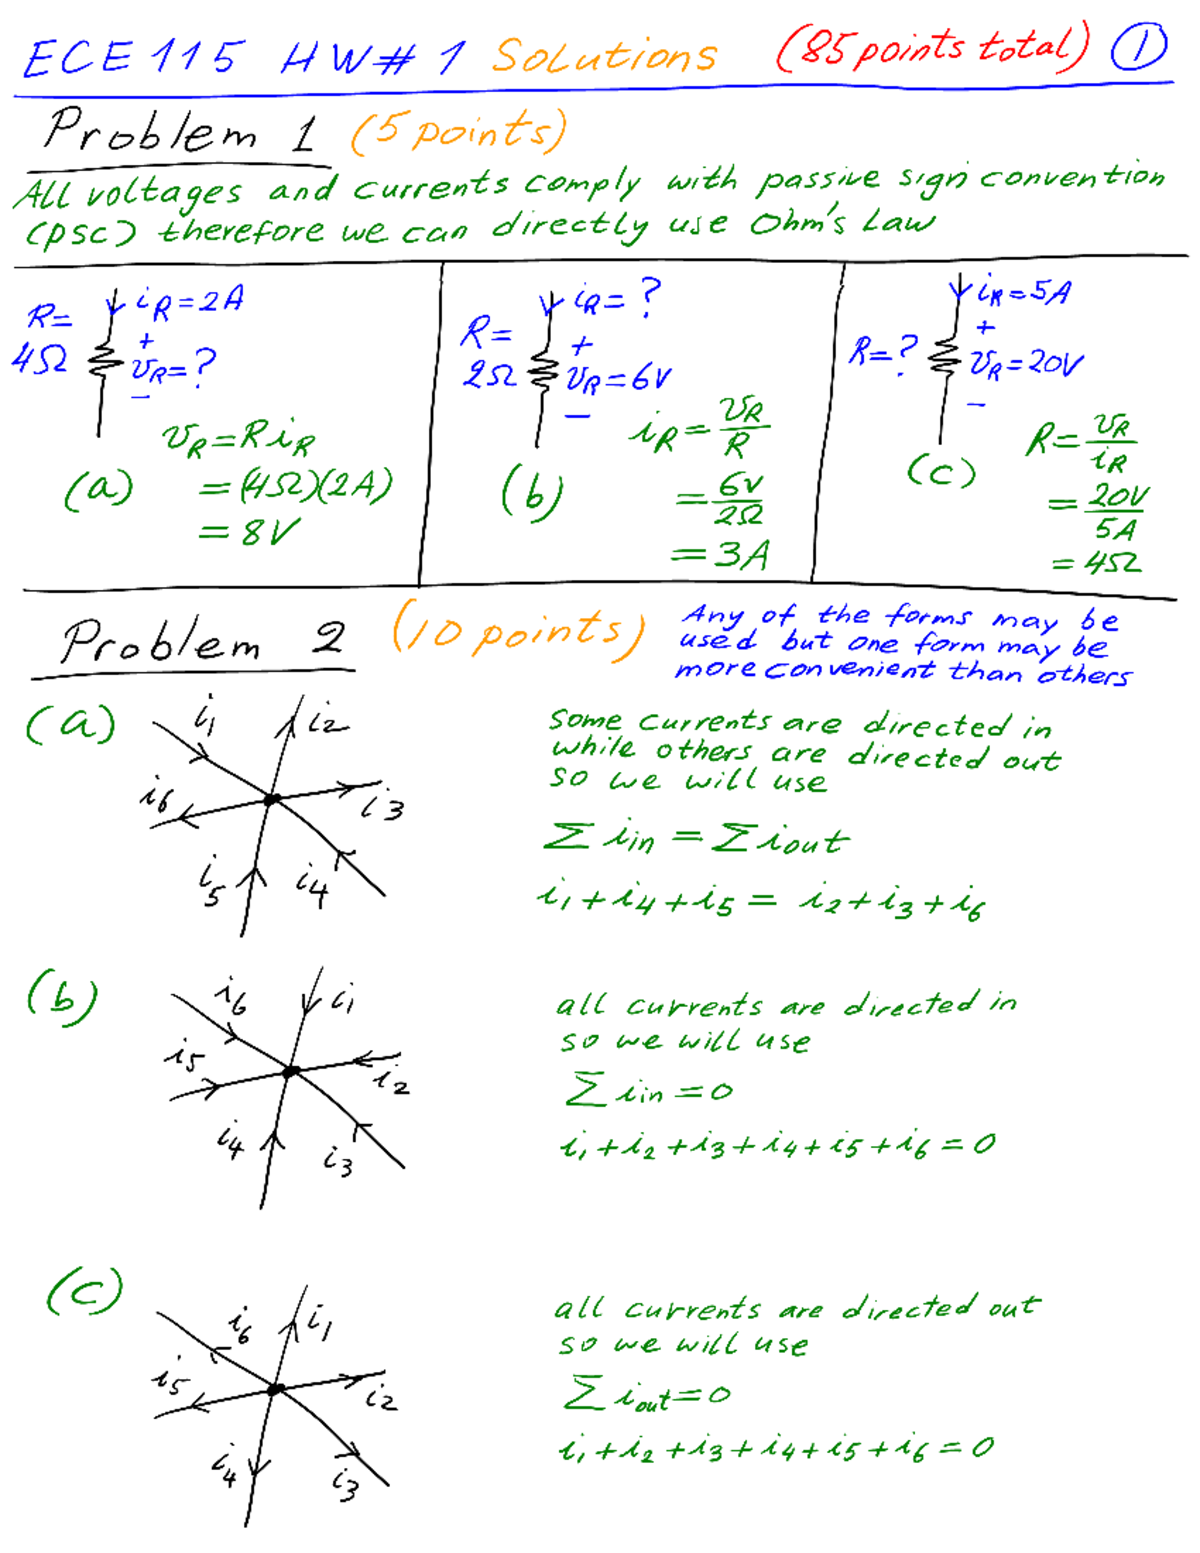 ECE 115 HW# 1 Solutions (85 points total) ①
Problem 1 (5 points)
All voltages and currents comply with passive sign convention
(psc) therefore we can directly use Ohm's Law
R=
4Ω
iR=2A
+
vR=?
−
vR=RiR
(a) =(4Ω)(2A)
=8V
R=
2Ω
iR=?
+
vR=6V
−
iR=vR/R
(b) =6V/2Ω
=3A
R=?
iR=5A
+
vR=20V
−
R=vR/iR
(c) =20V/5A
=4Ω
Problem 2 (10 points)
Any of the forms may be
used but one form may be
more convenient than others
(a)
i1 i2
i6 i3
i5 i4
Some currents are directed in
while others are directed out
so we will use
Σ iin = Σ iout
i1+i4+i5 = i2+i3+i6
(b)
i6 i1
i5 i2
i4 i3
all currents are directed in
so we will use
Σ iin =0
i1+i2+i3+i4+i5+i6=0
(c)
i6 i1
i5 i2
i4 i3
all currents are directed out
so we will use
Σ iout=0
i1+i2+i3+i4+i5+i6=0